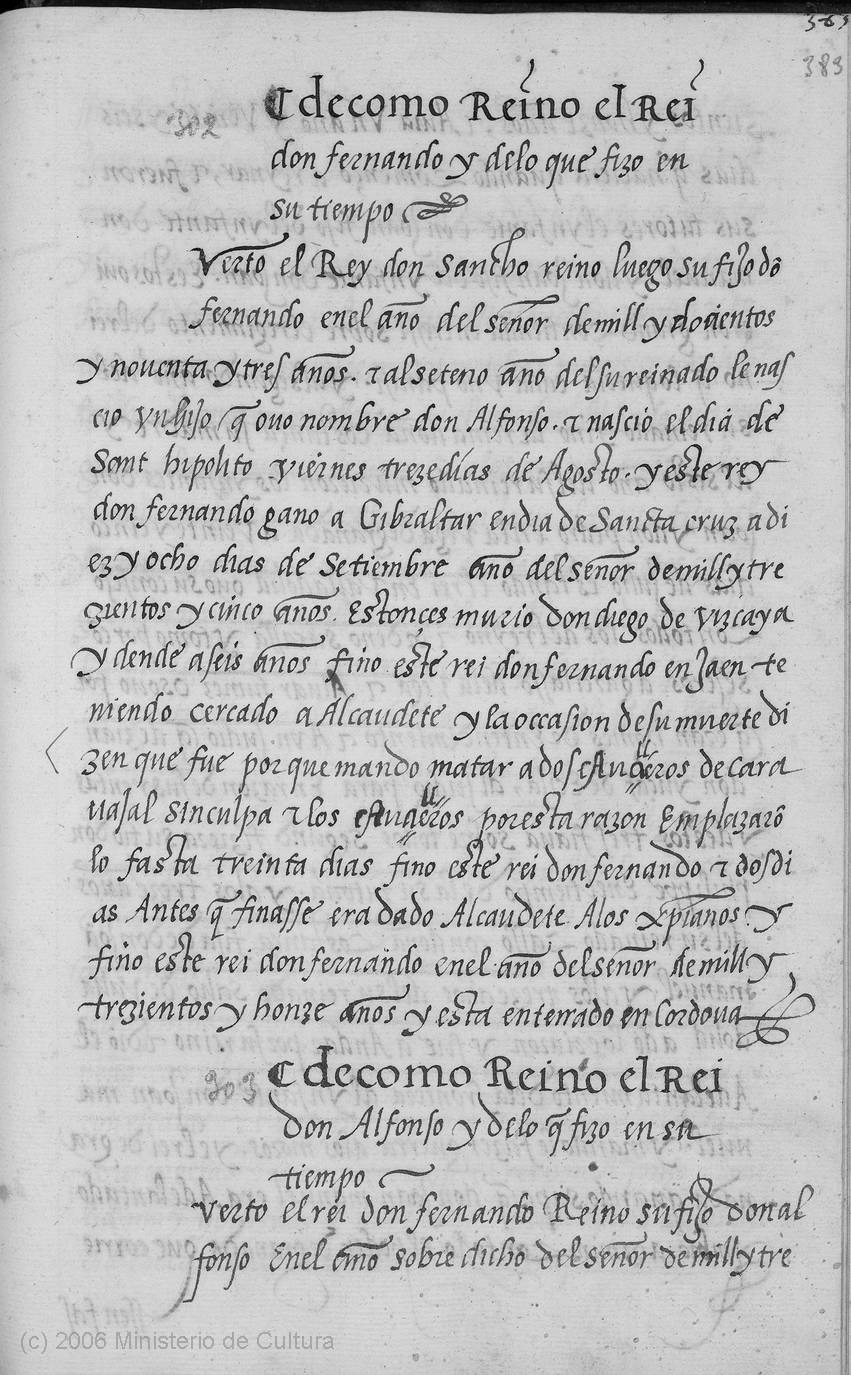 363
383
302
¶ decomo Reino el Rei
don fernando y delo que fizo en
su tiempo
Verto el Rey don Sancho reino luego su fijo dõ
fernando enel año del señor demill y docientos
y noventa y tres años. τ alseteno año delsureinado lenas
cio vnhijo q̃ ovo nombre don Alfonso. τ nascio eldia de
Sant hipolito viernes trezedias de Agosto. yeste rey
don fernando gano a Gibraltar endia de Sancta cruz adi
ez y ocho dias de Setiembre año del señor demill y tre
zientos y cinco años. Estonces murio don diego de vizcaya
y dende aseis años fino este rei don fernando en Jaen te
niendo cercado a Alcaudete y la occasion desu muerte di
zen que fue por que mando matar a dos escuderos de cara
uajal sinculpa τ los escuderos poresta razon Emplazarõ
lo fasta treinta dias fino este rei don fernando τ dosdi
as Antes q̃ finasse era dado Alcaudete Alos xp̃ianos y
fino este rei don fernando enel año del señor demill y
trezientos y honze años y esta enterrado en Cordova
303
¶ decomo Reino el Rei
don Alfonso y delo q̃ fizo en su
tiempo
verto el rei don fernando Reino su fijo donal
fonso Enel año sobre dicho del señor demill y tre
(c) 2006 Ministerio de Cultura